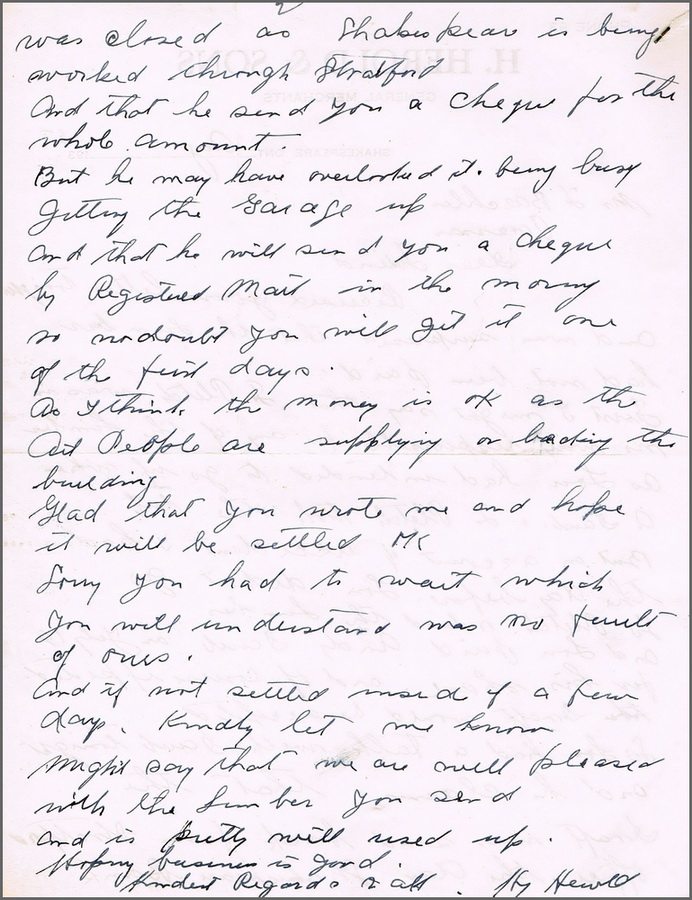 2
was closed as Shakespeare is being
worked through Stratford
And that he send you a cheque for the
whole amount.
But he may have overlooked it. being busy
getting the Garage up
and that he will send you a cheque
by Registered Mail in the morng
so nodoubt you will get it one
of the first days.
As I think the money is OK as the
Oil People are supplying or the
building
Glad that you wrote me and hope
it will be settled OK
Sorry you had to wait which
you will understand was no fault
of ours.
And if not settled insid of a few
days. Kindly let me know
Might say that we are well pleased
with the Lumber you send
and is pretty well used up.
Hoping business is good.
Kindest Regards to all. Hy Herold
H. HEROLD & SONS
GENERAL MERCHANTS